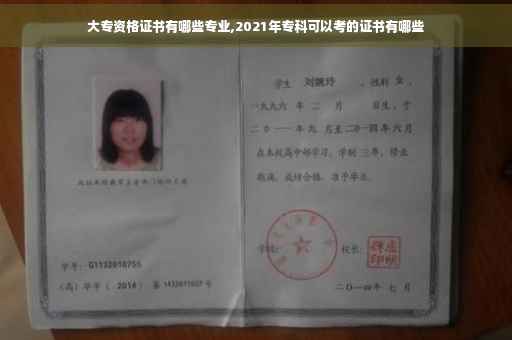 大专资格证书有哪些专业,2021年专科可以考的证书有哪些
学生 刘婉玲 ,性别 女 ,
一九九六 年 二 月 日生,于
二〇一一年九 月至二〇一四年六月
在本校高中部学习,学制 三年,修业
期满,成绩合格,准予毕业。
学校: 校长:
二〇一四年 七 月
学号: G1132010755
(高)毕字( 2014 )第 1432011027 号